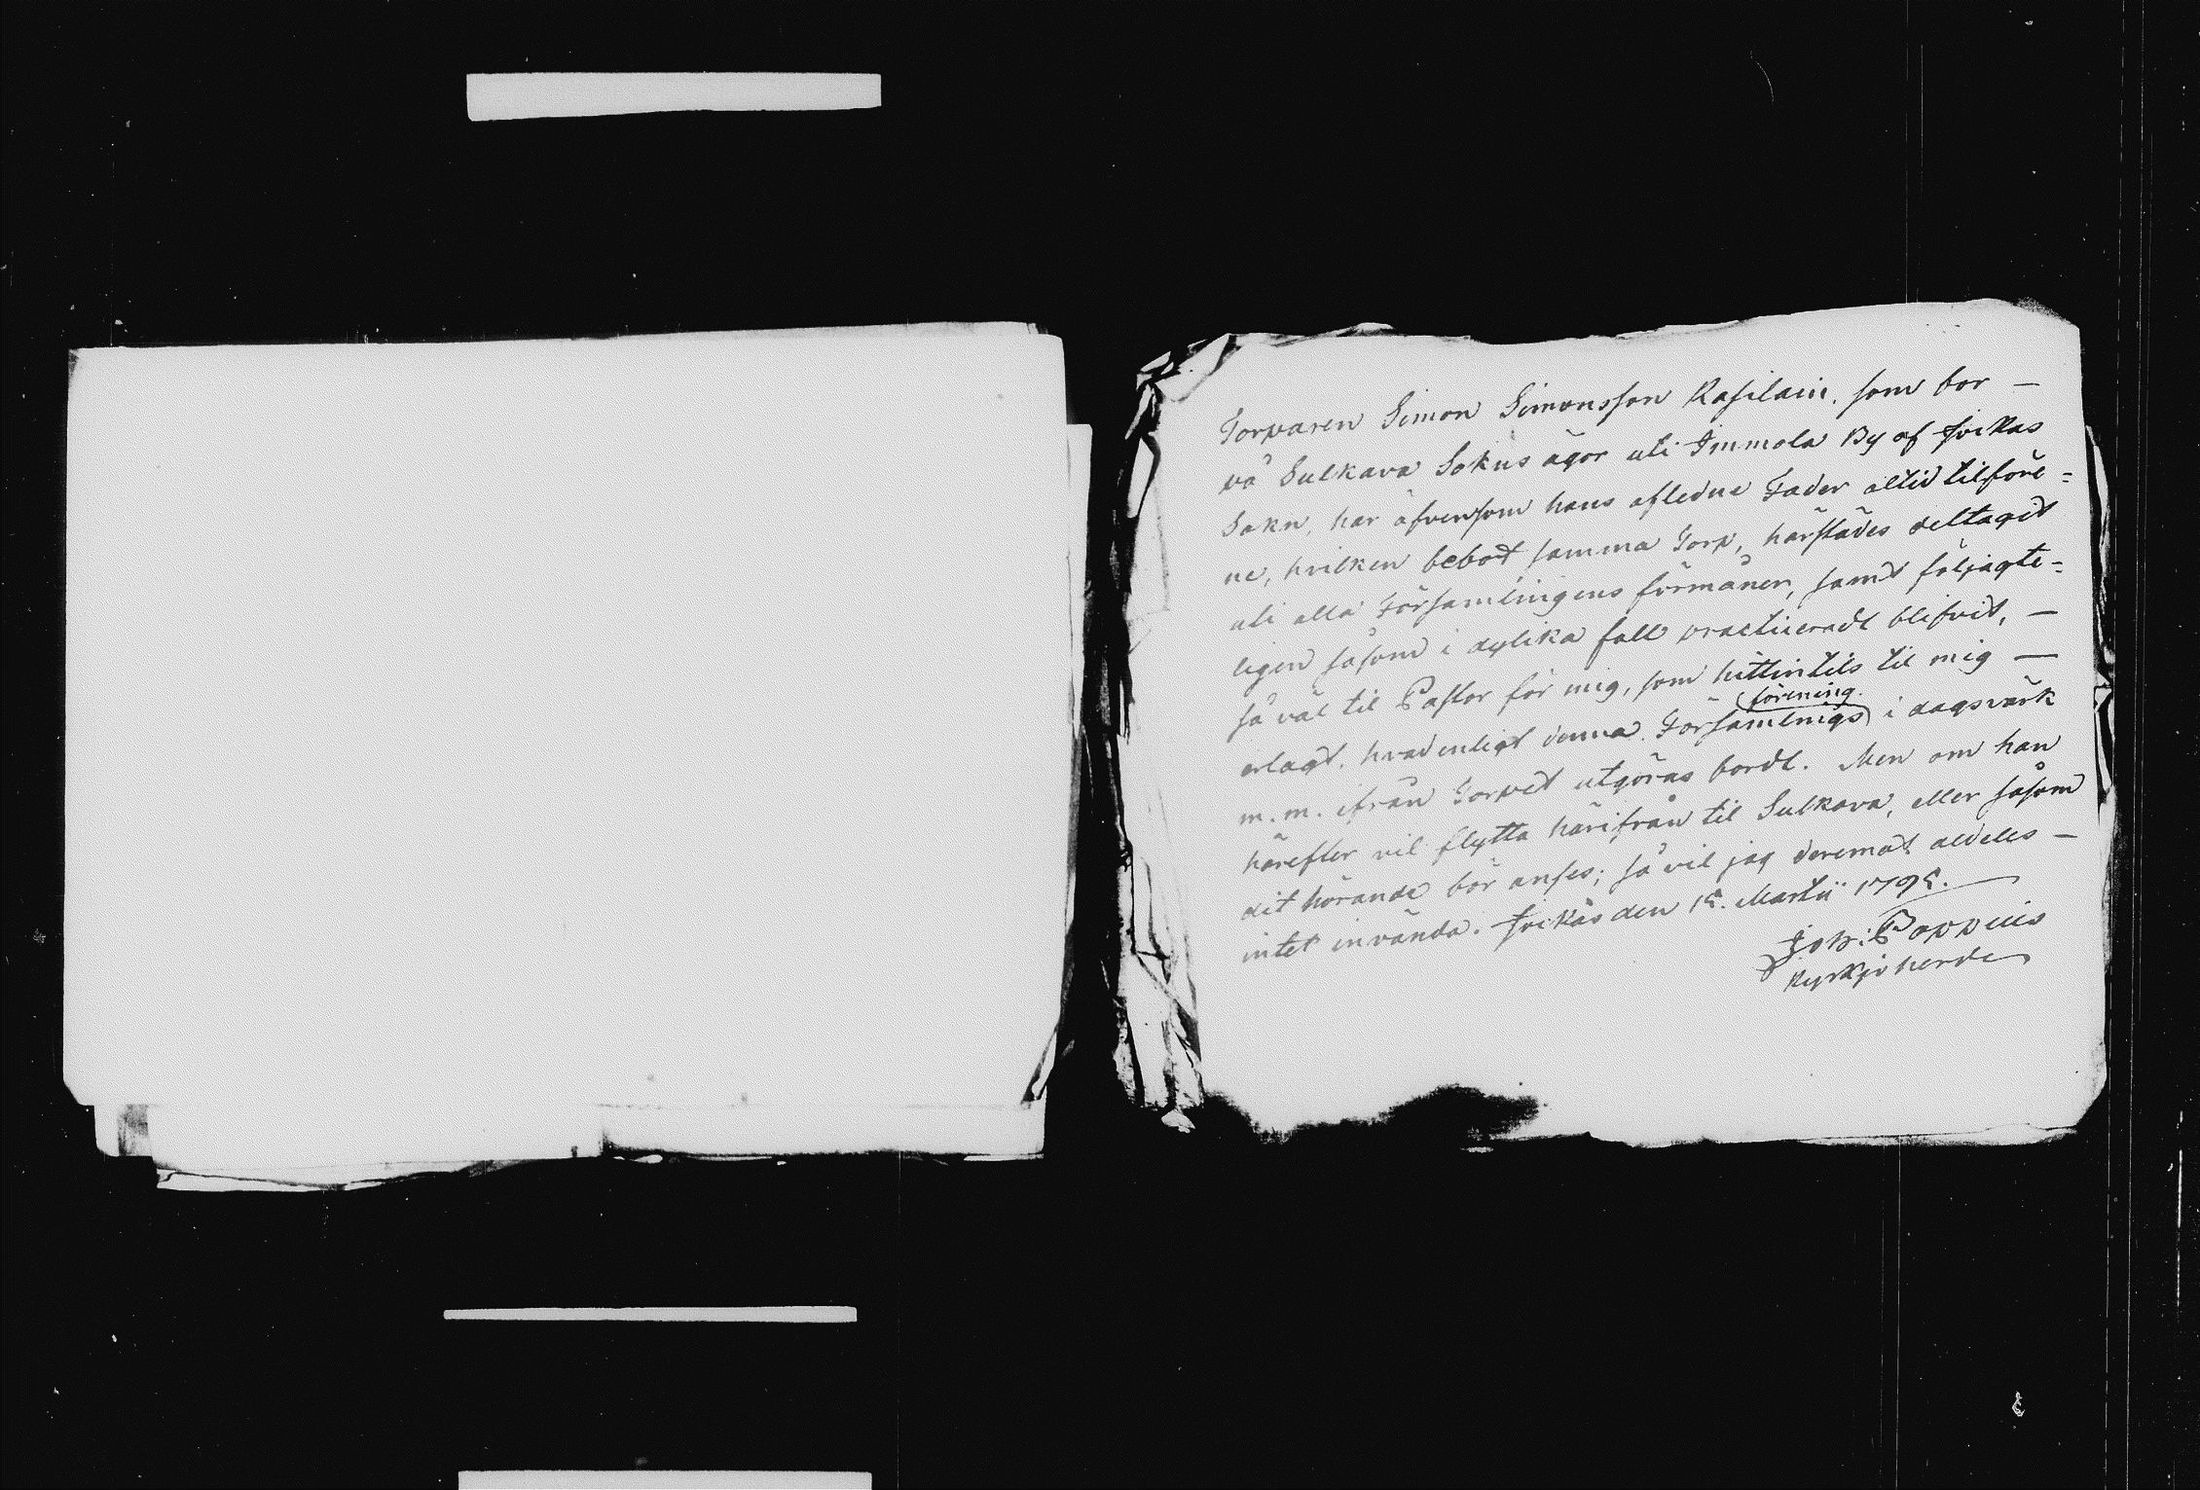 Torparen Simon Simonsson Rasilain, som bor –
på Sulkava Sokns ägor uti Immola By af Jockas
Sokn, har äfvensom hans afledne Fader altid tilföre=
ne, hvilken bebodt samma Torp, härstädes deltagit
uti alla Församlingens förmåner, samt följagte=
ligen såsom i dylika fall practiceradt blifvit, –
så väl til Pastor för mig, som hittintils til mig –
erlagt, hvad enligt denna Församlnigs förening i dagsvärk
m.m. ifrån Torpet utgöras bordt. Men om han
härefter vil flytta härifrån til Sulkava, eller såsom
dit hörande bör anses; så vil jag deremot aldeles –
intet invända. Jockas den 15. Martii 1795.
Joh: Poppius
Kyrkjoherde